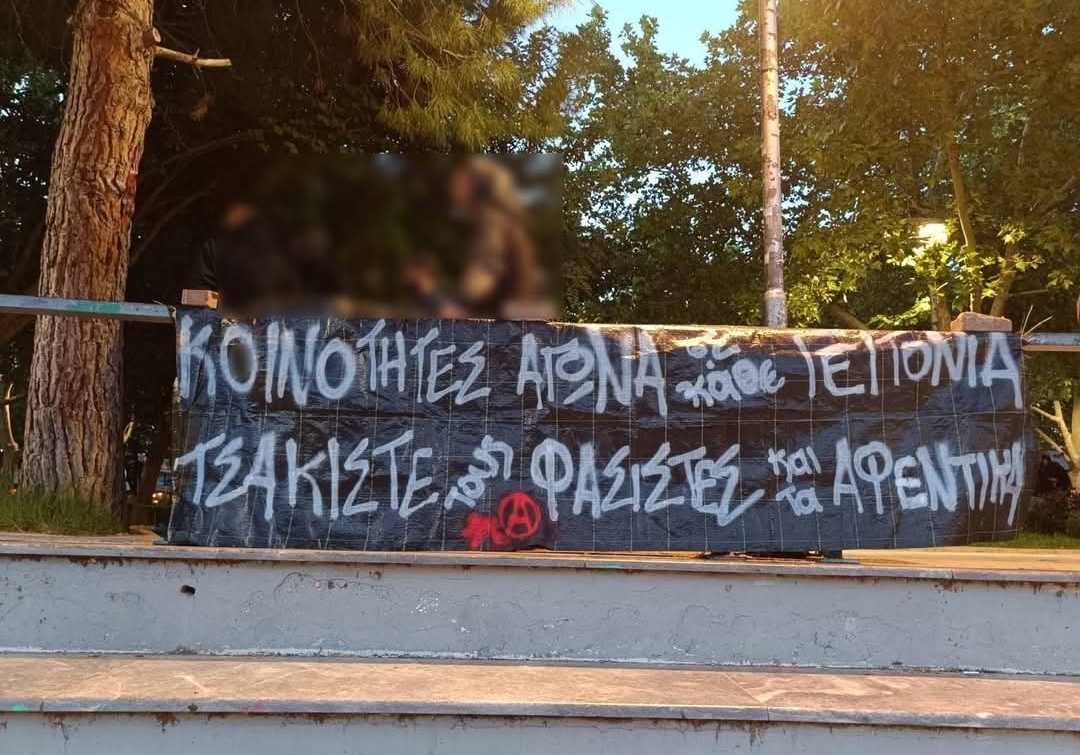 ΚΟΙΝΟΤΗΤΕΣ ΑΓΩΝΑ σε κάθε ΓΕΙΤΟΝΙΑ
ΤΣΑΚΙΣΤΕ τους ΦΑΣΙΣΤΕΣ και τα ΑΦΕΝΤΙΚΑ